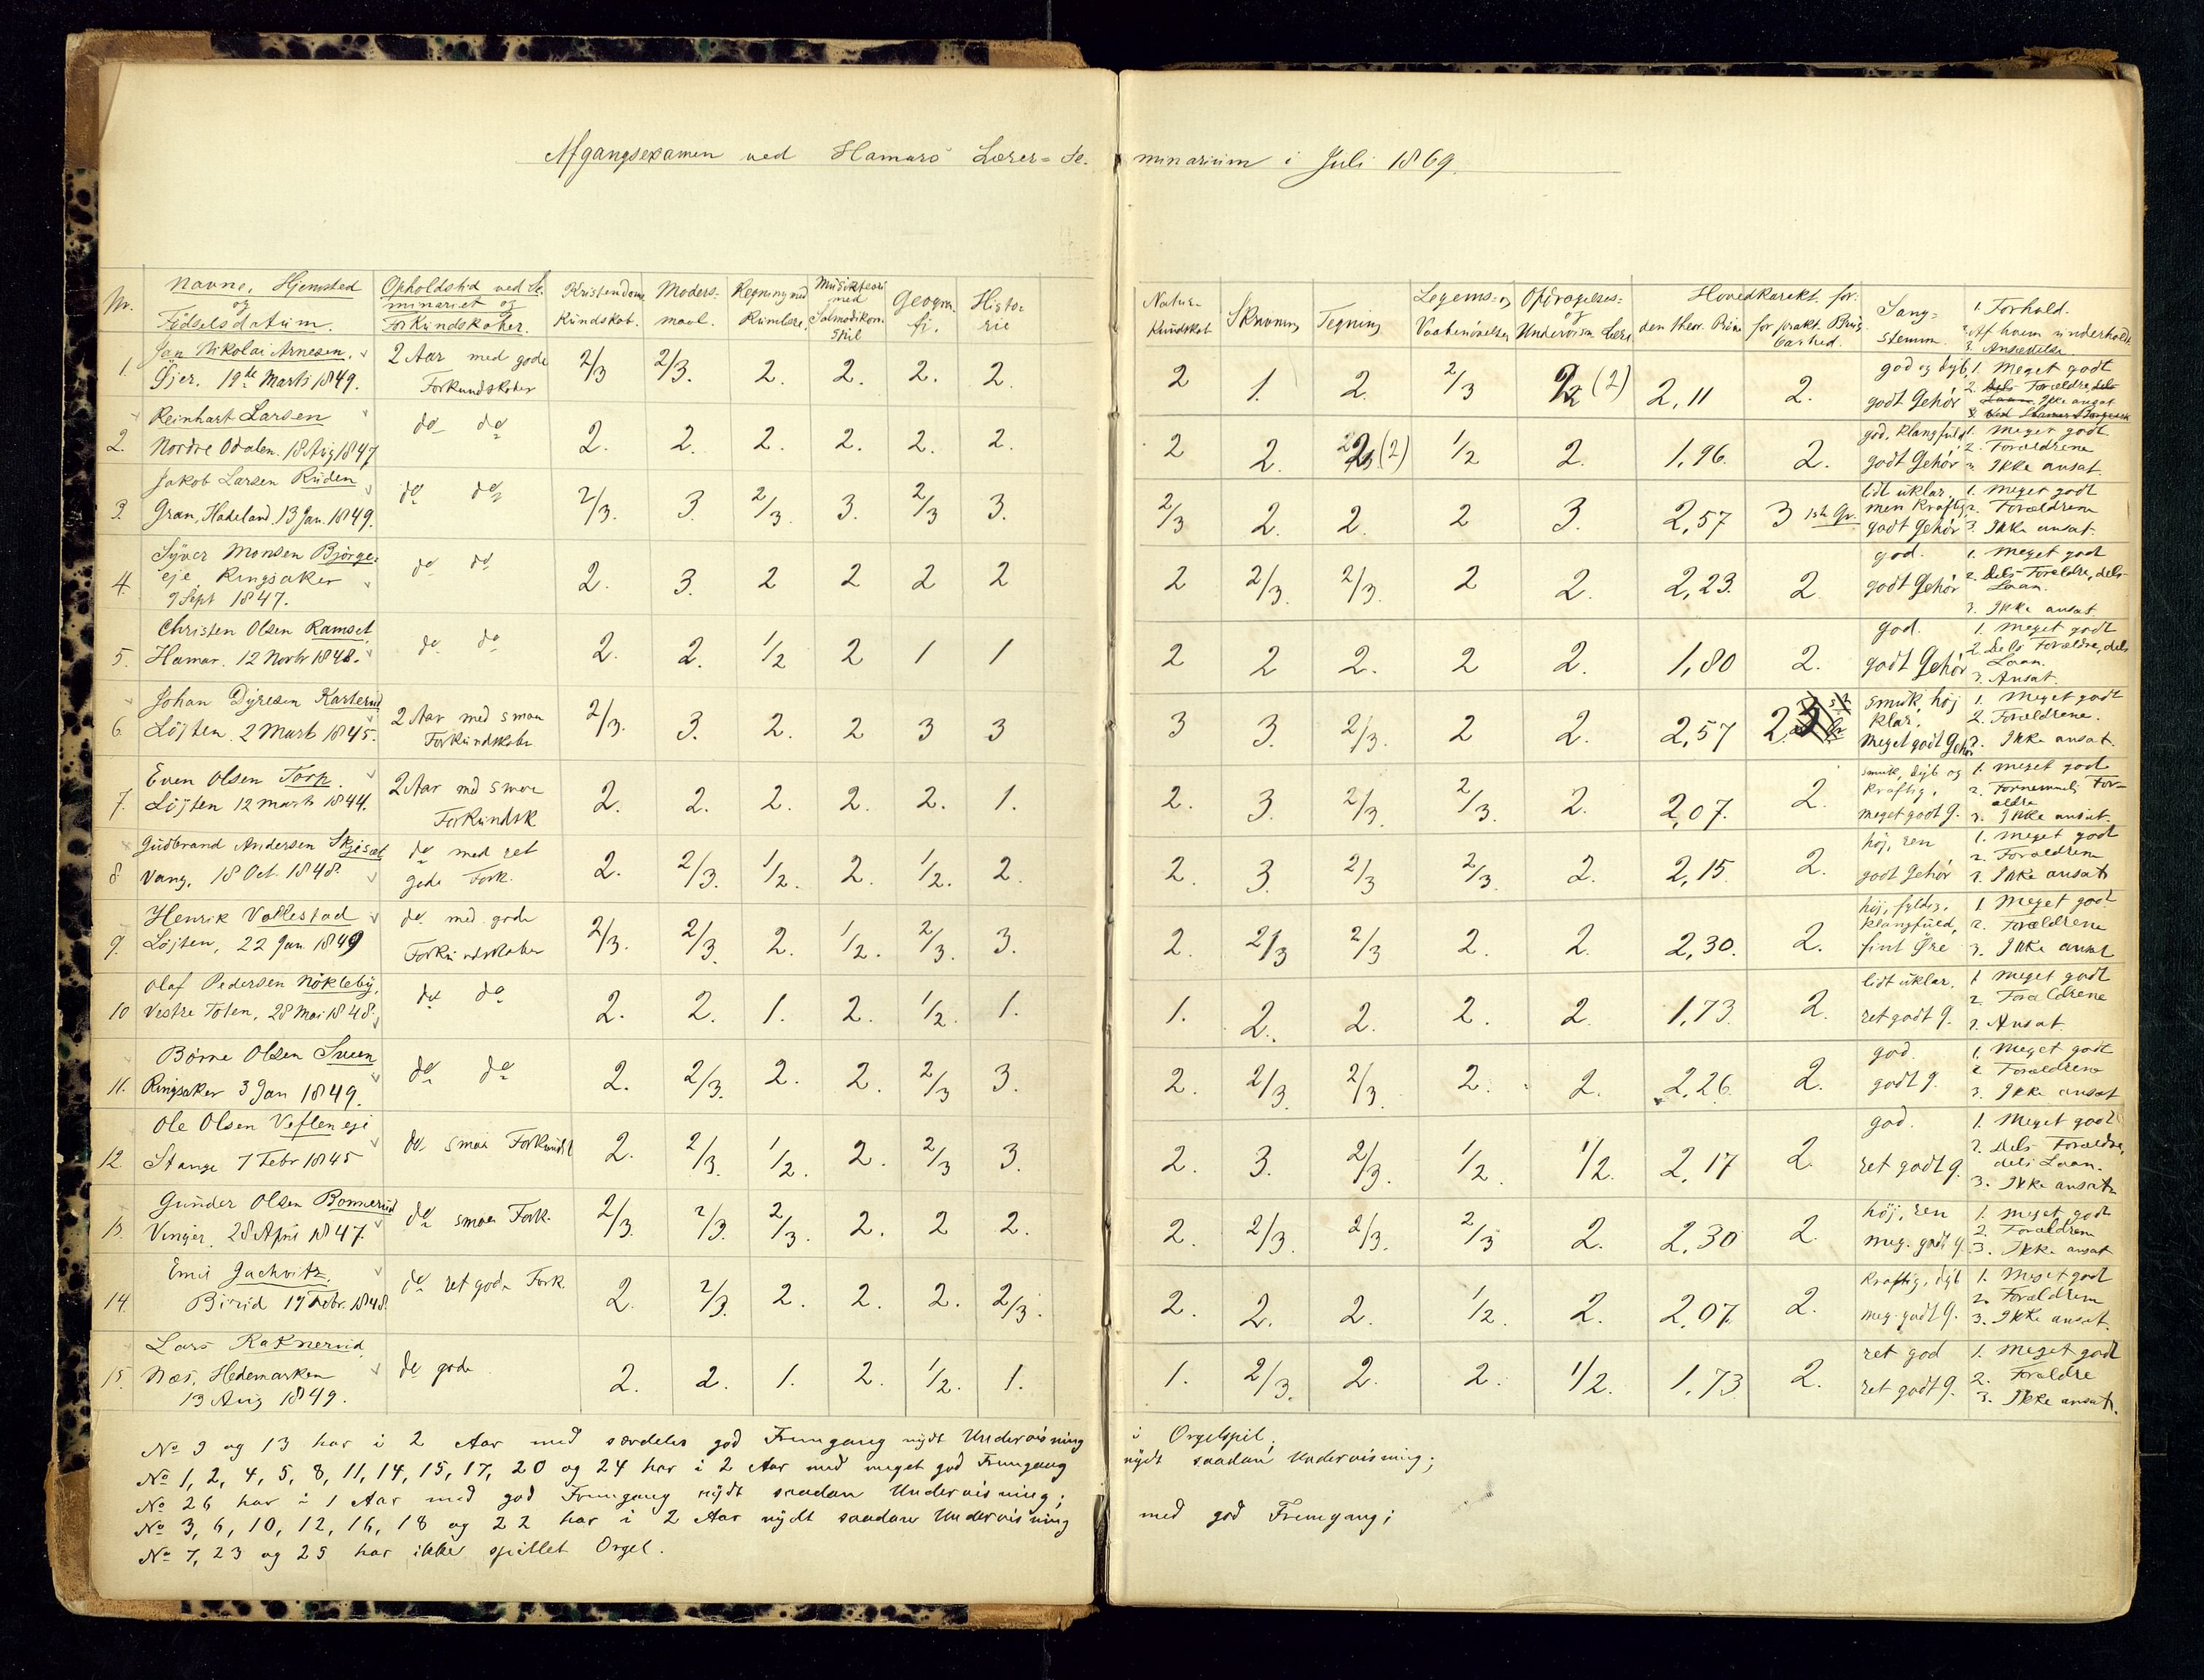 Afgangsexamen ved Hamars Lærer-Seminarium i Juli 1869.
Nr. | Navne, Hjemsted og Fødselsdatum. | Opholdstid ved Seminariet og Forkundskaber. | Kristendoms Kundskab. | Moders- maal. | Regning med Rumlære. | Musiktheori med Salmodikon Spil | Geogra- fi. | Histo- rie | Natur- Kundskab | Skrivning | Tegning | Legems- og Vaabenøvelser | Opdragelses- og Undervisn. Lære. | Hovedkarakt. for: den theor. Prøve | for prakt. Brugbarhed. | Sang- stemme. | 1. Forhold. 2. Af hvem underholdt. 3. Ansættelse.
1. | Jan Nikolai Arnesen. Øjer. 19de Marts 1849. | 2 Aar med gode Forkundskaber | 2/3 | 2/3. | 2. | 2. | 2. | 2. | 2 | 1. | 2. | 2/3 | 2 (2) | 2,11 | 2. | god og dyb, godt Gehör | 1. Meget godt 2. Dels Forældre, dels Laan. Ikke ansat
2. | Reinhart Larsen Nordre Odalen. 18 Aug 1847 | do do | 2. | 2. | 2. | 2. | 2. | 2. | 2 | 2. | 2 (2) | 1/2 | 2. | 1,96. | 2. | god, klangfuld godt Gehör | 1. Meget godt 2. Forældrene 3. Ikke ansat
3. | Jakob Larsen Ruden Gran, Hadeland. 13 Jan. 1849. | do do | 2/3. | 3. | 2/3. | 3. | 2/3 | 3. | 2/3 | 2. | 2. | 2 | 3. | 2,57 | 3 1ste Gr. | lidt uklar, men kraftig, godt Gehör | 1. Meget godt 2. Forældrene 3. Ikke ansat.
4. | Syver Monsen Bjørge- eje Ringsaker 9 Sept 1847. | do do | 2. | 3. | 2 | 2 | 2 | 2 | 2 | 2/3. | 2/3. | 2 | 2. | 2,23. | 2 | god. godt Gehör | 1. Meget god 2. Dels Forældre, dels Laan. 3. Ikke ansat
5. | Christen Olsen Ramset Hamar. 12 Novbr 1848. | do do | 2. | 2. | 1/2 | 2 | 1 | 1 | 2 | 2 | 2. | 2 | 2. | 1,80 | 2. | god. godt Gehör | 1. Meget godt 2. Dels Forældre, dels Laan. 3. Ansat.
6. | Johan Dyresen Karterud Löjten. 2 Marts 1845. | 2 Aar med smaa Forkundskaber | 2/3. | 3. | 2. | 2 | 3 | 3 | 3 | 3. | 2/3. | 2 | 2. | 2,57 | 2. | smuk, høj klar. Meget godt Gehör | 1. Meget godt 2. Forældrene. 3. Ikke ansat.
7. | Even Olsen Torp. Löjten 12 Marts 1844. | 2 Aar med smaa Forkundsk | 2. | 2. | 2. | 2. | 2. | 1. | 2. | 3. | 2/3. | 2/3. | 2. | 2,07. | 2. | smuk, dyb og kraftig. meget godt G. | 1. Meget god 2. Fornemmeli. For- ældre 3. Ikke ansat.
8 | Gudbrand Andersen Skjeset Vang. 18 Oct. 1848. | do med ret gode Fork. | 2. | 2/3. | 1/2. | 2. | 1/2. | 2. | 2. | 3. | 2/3 | 2/3. | 2. | 2,15. | 2. | høj, ren godt Gehör | 1. Meget god 2. Forældrene 3. Ikke ansat
9. | Henrik Vollestad Löjten, 22 Jan 1849 | do med gode Forkundskaber | 2/3. | 2/3. | 2. | 1/2. | 2/3. | 3. | 2. | 2/3 | 2/3 | 2. | 2. | 2,30. | 2. | høj, fyldig, klangfuld, fint Øre | 1. Meget god 2. Forældrene 3. Ikke ansat
10 | Olaf Pedersen Nökleby, Vestre Toten, 28 Mai 1848. | do do | 2. | 2. | 1. | 2. | 1/2. | 1. | 1. | 2. | 2. | 2. | 2. | 1,73. | 2. | lidt uklar. ret godt G. | 1 Meget godt 2. Forældrene 3. Ansat.
11. | Börre Olsen Sveen Ringsaker 3 Jan 1849. | do do | 2. | 2/3. | 2. | 2. | 2/3 | 3. | 2. | 2/3 | 2/3. | 2. | 2. | 2,26. | 2. | god. godt G. | 1. Meget godt 2 Forældrene 3. Ikke ansat
12. | Ole Olsen Veflen eje Stange 7 Febr 1845 | do smaa Forkundsk | 2. | 2/3. | 1/2. | 2. | 2/3 | 3. | 2. | 3. | 2/3. | 1/2. | 1/2. | 2,17 | 2. | god. ret godt G. | 1. Meget godt 2. Dels Forældre, dels Laan. 3. Ikke ansat
13. | Gunder Olsen Bonnerud Vinger. 28 April 1847. | do smaa Fork. | 2/3. | 2/3. | 2/3. | 2. | 2 | 2. | 2. | 2/3. | 2/3. | 2/3 | 2. | 2,30 | 2. | høj, ren meg. godt G. | 1. Meget godt 2. Forældrene 3. Ikke ansat
14. | Emil Jachvitz. Birid 19 Febr. 1848. | do ret gode Fork. | 2. | 2/3. | 2. | 2. | 2. | 2/3. | 2. | 2. | 2. | 1/2. | 2. | 2,07. | 2. | kraftig, dyb meg. godt G. | 1. Meget god 2. Forældrene 3. Ikke ansat.
15. | Lars Raknerud Næs, Hedemarken 13 Aug 1849. | do gode | 2. | 2. | 1. | 2. | 1/2. | 1. | 1. | 2/3. | 2. | 2. | 1/2. | 1,73 | 2. | ret god ret godt G. | 1. Meget godt 2. Forældre 3. Ikke ansat.
No 9 og 13 har i 2 Aar med særdeles god Fremgang nydt Undervisning i Orgelspil;
No 1, 2, 4, 5, 8, 11, 14, 15, 17, 20 og 24 har i 2 Aar med meget god Fremgang nydt saadan Undervisning;
No 26 har i 1 Aar med god Fremgang nydt saadan Undervisning;
No 3, 6, 10, 12, 16, 18 og 22 har i 2 Aar nydt saadan Undervisning med god Fremgang;
No 7, 23 og 25 har ikke spillet Orgel.